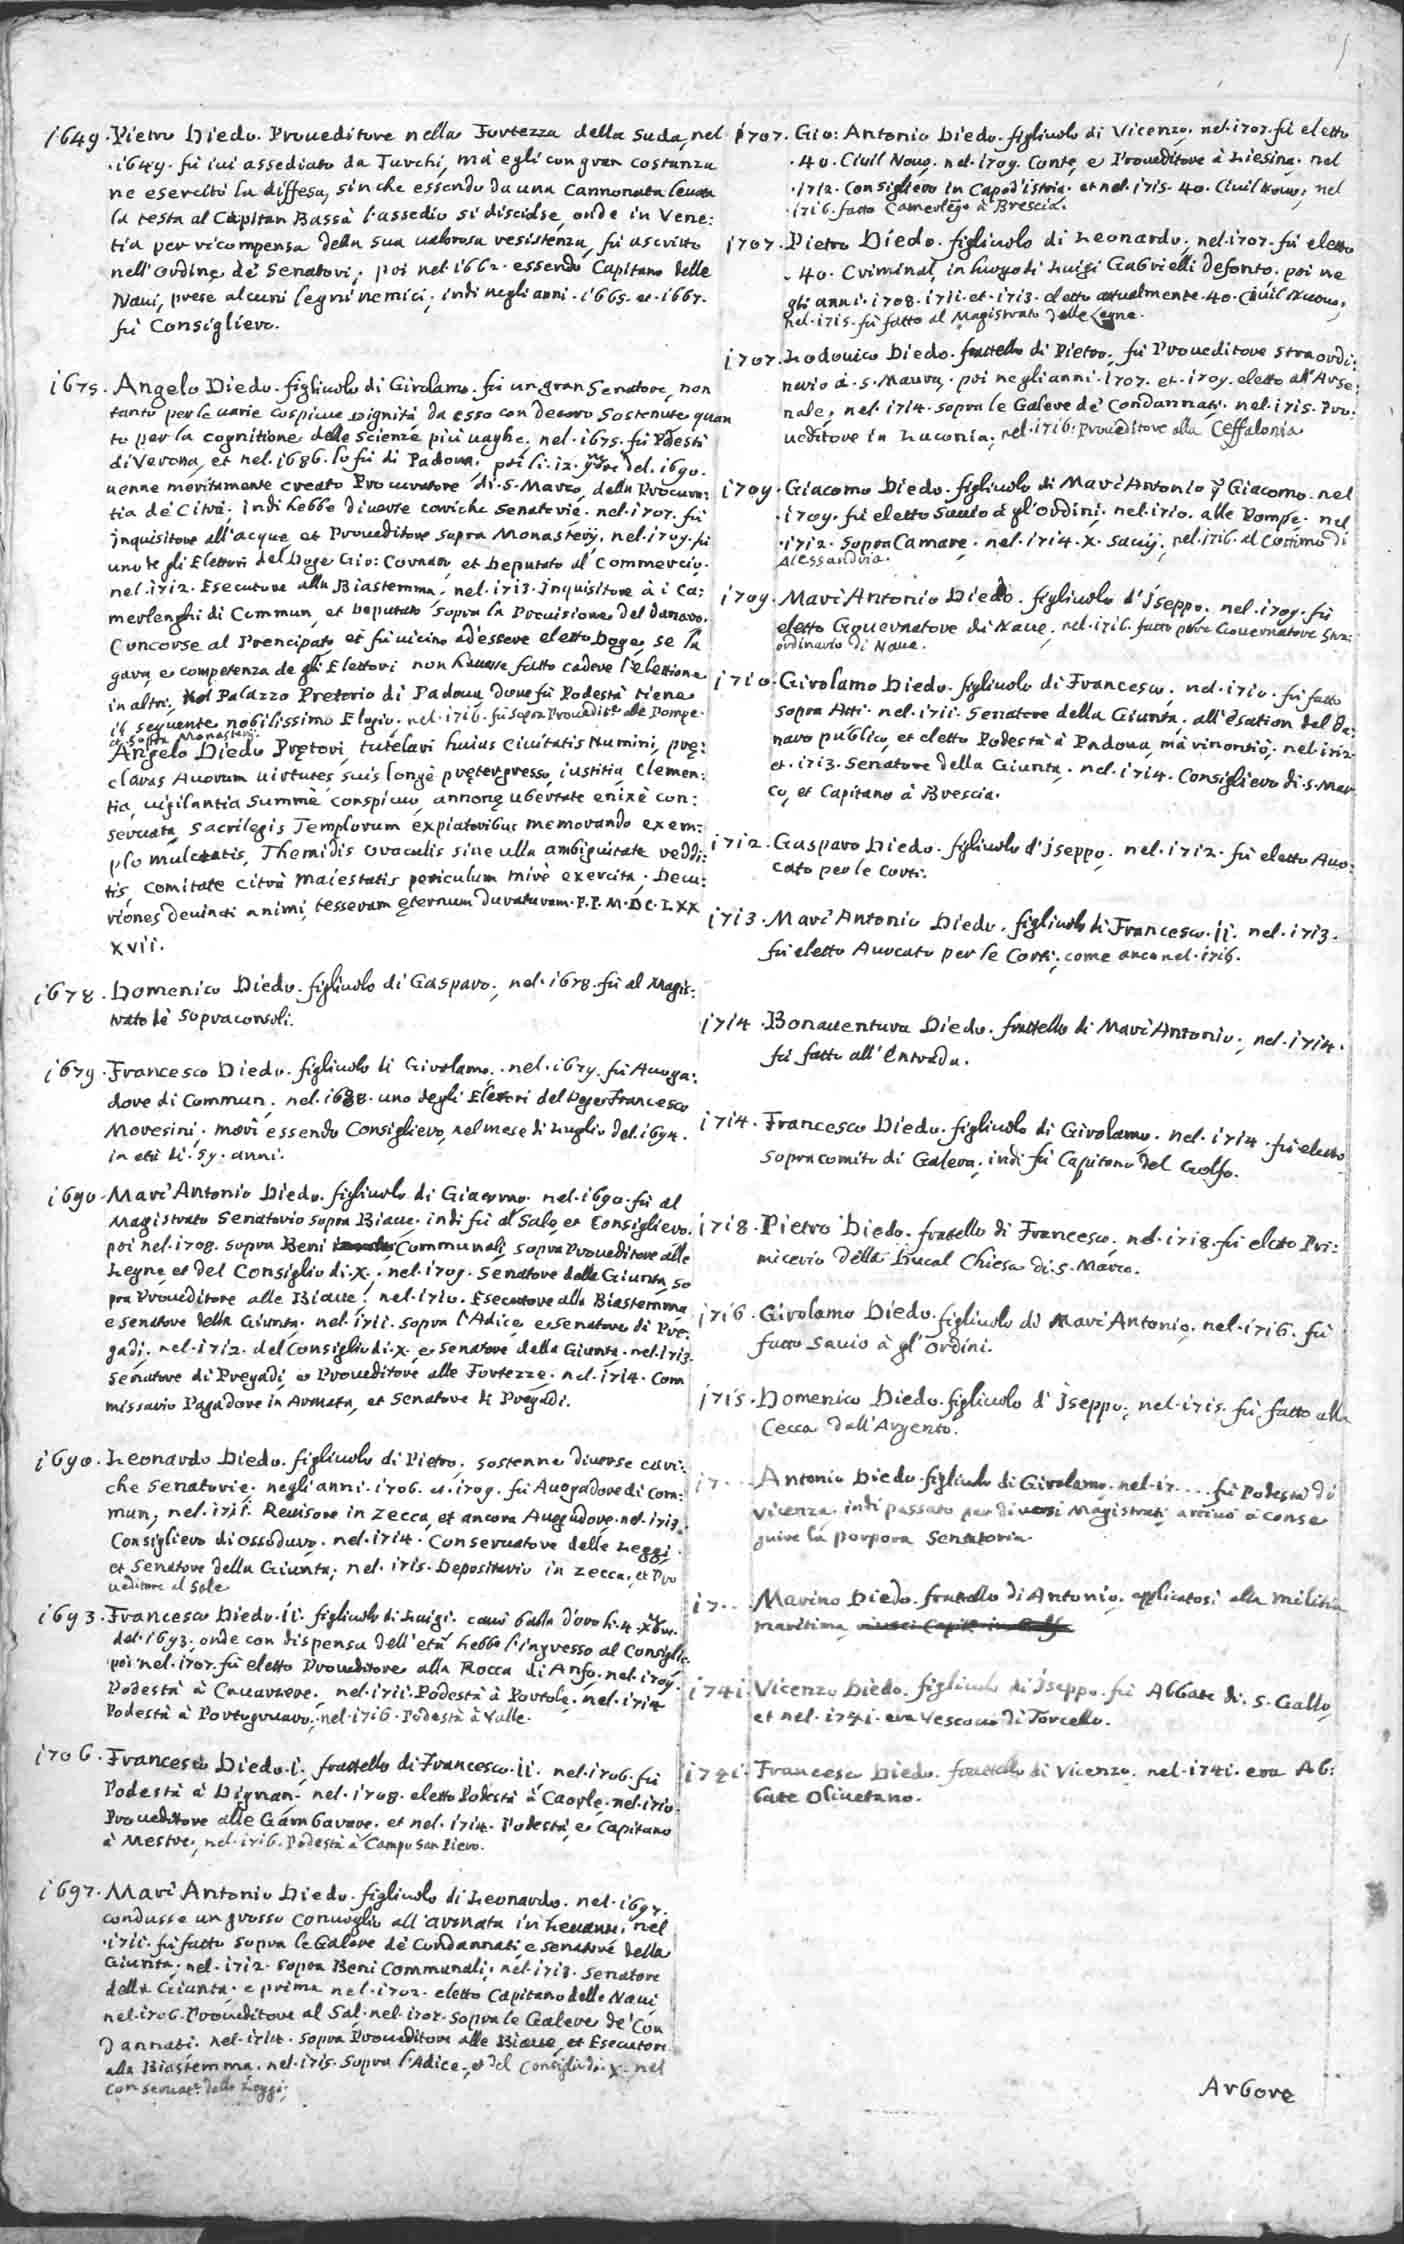 1649. Pietro Diedo. Proueditore nella Fortezza della Suda, nel
.1649. fù iui assediato da Turchi, mà egli con gran costanza
ne esercitò la diffesa, sinche essendo da una Cannonata leuata
la testa al Capitan Bassà l'assedio si disciolse, onde in Vene:
tia per ricompensa della sua ualorosa resistenza, fù ascritto
nell'ordine de Senatori; poi nel.1662. essendo Capitano delle
Naui, prese alcuni legni nemici; indi negli anni.1665. et.1667.
fù Consigliero.
1675. Angelo Diedo. figliuolo di Girolamo. fù un gran Senatore, non
tanto per le uarie cospicue Dignità da esso con decoro sostenute quan
to per la cognitione delle scienze più uaghe. nel.1675. fù Podestà
di Verona, et nel.1686. lo fù di Padoua. poi li.12. 9bre del.1690.
uenne meritamente creato Procuratore di.S.Marco, della Procura:
tia de Citrà. indi hebbe diuerse cariche Senatorie. nel.1707. fù
Inquisitore all'acque et Proueditore sopra Monasterij, nel.1709. fù
uno de gli Elettori del Doge Gio: Cornaro, et Deputato al Commercio.
nel.1712. Esecutore alla Biastemma. nel.1713. Inquisitore à i Ca:
merlenghi di Commun, et Deputato sopra la Prouisione del danaro.
Concorse al Prencipato et fù uicino ad'essere eletto Doge, se la
gara, e competenza de gli Elettori non hauesse fatto cadere l'elettione
in altri. Nel Palazzo Pretorio di Padoua doue fù Podestà tiene
il seguente nobilissimo Elogio. nel.1716. fù Sopra Proueditr alle Pompe.
et sopra Monasterij.
Angelo Diedo Prętori, tutelari huius Ciuitatis Numini, prę:
claras Auorum uirtutes suis longè prętergresso, iustitia, Clemen:
tia, uigilantia summè conspicuo, annonę ubertate enixè con:
seruata, Sacrilegis Templorum expiatoribus memorando exem:
plo mulctatis, Themidis oraculis sine ulla ambiguitate reddi:
tis, comitate citrà Maiestatis periculum mirè exercita. Decu:
riones deuincti animi tesseram ęternum duraturam.P.P.M.DC.LXX
XVII.
1678. Domenico Diedo. figliuolo di Gasparo, nel.1678. fù al Magis:
trato de Sopraconsoli.
1679. Francesco Diedo. figliuolo di Girolamo. nel.1679. fù Auoga:
dore di Commun. nel.1688. uno degli Elettori del Doge Francesco
Moresini. morì essendo Consigliero, nel mese di Luglio del.1694.
in età di.59. anni.
1690. Mari Antonio Diedo. figliuolo di Giacomo. nel.1690. fù al
Magistrato Senatorio sopra Biaue. indi fù al Sale et Consigliero.
poi nel.1708. sopra Beni Communali, sopra Proueditore alle
Legne et del Consiglio di.X. nel.1709. Senatore della Giunta, so
pra Proueditore alle Biaue. nel.1710. Esecutore alla Biastemma,
e Senatore della Giunta. nel.1711. sopra l'Adice, e Senatore di Pre:
gadi. nel.1712. del Consiglio di.X. e Senatore della Giunta. nel.1713.
Senatore di Pregadi, e Proueditore alle Fortezze. nel.1714. Com
missario Pagadore in Armata, et Senatore di Pregadi.
1690. Leonardo Diedo. figliuolo di Pietro. sostenne diuerse cari:
che Senatorie. negli anni.1706. et.1709. fù Auogadore di Com:
mun, nel.1711. Reuisore in Zecca, et ancora Auogadore. nel.1713.
Consigliero di ossoduro. nel.1714. Conseruatore delle Leggi.
et Senatore della Giunta. nel.1715. Depositario in Zecca, et Pro
ueditore al Sale
1693. Francesco Diedo.ii. figliuolo di Luigi. cauò balla d'oro li.4. Xbre.
del.1693. onde con dispensa dell'età hebbe l'ingresso al Consiglio.
poi nel.1707. fù eletto Proueditore alla Rocca di Anfo. nel.1709.
Podestà à Cauarzere. nel.1711. Podestà à Portole. nel.1714
Podestà à Portogruaro. nel.1716. Podestà à Valle.
1706. Francesco Diedo.i. frattello di Francesco.ii. nel.1706. fù
Podestà à Dignan. nel.1708. eletto Podestà à Caorle. nel.1710.
Proueditore alle Gambarare. et nel.1714. Podestà, e Capitano
à Mestre. nel.1716. Podestà à Campo San Piero.
1697. Mari Antonio Diedo. figliuolo di Leonardo. nel.1697.
condusse un grosso Conuoglio all'armata in Leuante. nel
.1711. fù fatto sopra le Galere de Condannati, e Senatore della
Giunta. nel.1712. sopra Beni Communali. nel.1713. Senatore
della Giunta. e prima nel.1702. eletto Capitano delle Naui
nel.1706. Proueditore al Sal. nel.1707. sopra le Galere de'Con
dannati. nel.1714. sopra Proueditore alle Biaue, et Esecutore
alla Biastemma. nel.1715. sopra l'Adice. et del Consiglio di.X. nel
Conseruatr delle Leggi.
1707. Gio: Antonio Diedo. figliuolo di Vicenzo. nel.1707. fù eletto
.40. Ciuil Nouo. nel.1709. Conte, e Proueditore à Liesina. nel
.1712. Consigliero in Capod'istria. et nel.1715. 40. Ciuil Nouo, nel
.1716. fatto Camerlengo à Brescia.
1707. Pietro Diedo. figliuolo di Leonardo. nel.1707. fù eletto
.40. Criminal, in luogo di Luigi Gabrielli defonto. poi ne
gli anni.1708. 1711. et.1713. eletto attualmente.40. Ciuil Nuouo,
nel.1715. fù fatto al Magistrato delle Legne.
1707. Lodouico Diedo. frattello di Pietro. fù Proueditore straordi:
nario à.S.Maura. poi negli anni.1707. et.1709. eletto all'Arse:
nale. nel.1714. sopra le Galere de Condannati. nel.1715. Pro:
ueditore in Laconia. nel.1716. Proueditore alla Ceffalonia
1709. Giacomo Diedo. figliuolo di Mari Antonio Giacomo. nel
.1709. fù eletto Sauio à gl'ordini. nel.1710. alle Pompe. nel
.1712. sopra Camare. nel.1714. X. Sauij. nel.1716. al Cottimo di
Alessandria.
1709. Mari Antonio Diedo. figliuolo d'Iseppo. nel.1709. fù
eletto Gouernatore di Naue. nel.1716. fatto pure Gouernatore Stra:
ordinario di Naue.
1710. Girolamo Diedo. figliuolo di Francesco. nel.1710. fù fatto
sopra Atti. nel.1711. Senatore della Giunta. all'Esation del da:
naro publico, et eletto Podestà à Padoua, mà rinontiò. nel.1712
et.1713. Senatore della Giunta. nel.1714. Consigliero di.S.Mar
co, et Capitano à Brescia.
1712. Gasparo Diedo. figliuolo d'Iseppo. nel.1712. fù eletto Auo:
cato per le Corti.
1713. Mari Antonio Diedo. figliuolo di Francesco.ii. nel.1713.
fù eletto Auocato per le Corti. come anco nel.1716.
1714. Bonauentura Diedo. frattello di Mari Antonio. nel.1714.
fù fatto all'Entrada.
1714. Francesco Diedo. figliuolo di Girolamo. nel.1714. fù eletto
Sopracomito di Galera. indi fù Capitano del Golfo.
1718. Pietro Diedo. fratello di Francesco. nel.1718. fù eletto Pri:
micerio della Ducal Chiesa di.S.Marco.
1716. Girolamo Diedo. figliuolo di Mari Antonio. nel.1716. fù
fatto Sauio à gl'ordini.
1715. Domenico Diedo. figliuolo d'Iseppo. nel.1715. fù fatto alla
Cecca dall'Argento.
17... Antonio Diedo. figliuolo di Girolamo. nel.17.... fù Podestà di
Vicenza. indi passato per diuersi Magistrati arriuò à conse
guire la porpora Senatoria.
17.. Marino Diedo. fratello di Antonio. applicatosi alla militia
maritima
1741. Vicenzo Diedo. figliuolo di Iseppo. fù Abbate di.S.Gallo,
et nel.1741. era Vescouo di Torcello.
1741. Francesco Diedo. frattello di Vicenzo. nel.1741. era Ab:
bate Oliuetano.
Arbore